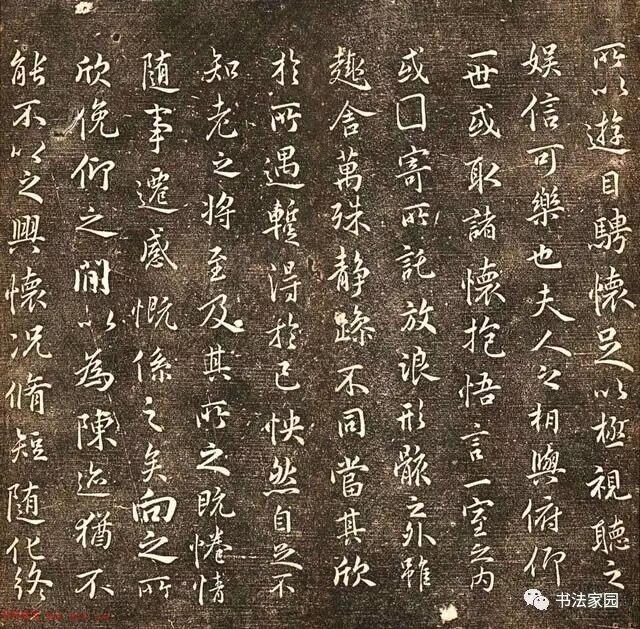 所以遊目騁懷足以極視聽之
娛信可樂也夫人之相與俯仰
一世或取諸懷抱悟言一室之内
或囗寄所託放浪形骸之外雖
趣舍萬殊静躁不同當其欣
於所遇蹔得於己怏然自足不
知老之將至及其所之既惓情
随事遷感慨係之矣向之所
欣俛仰之閒以為陳迹猶不
能不以之興懷况脩短随化終
书法家园